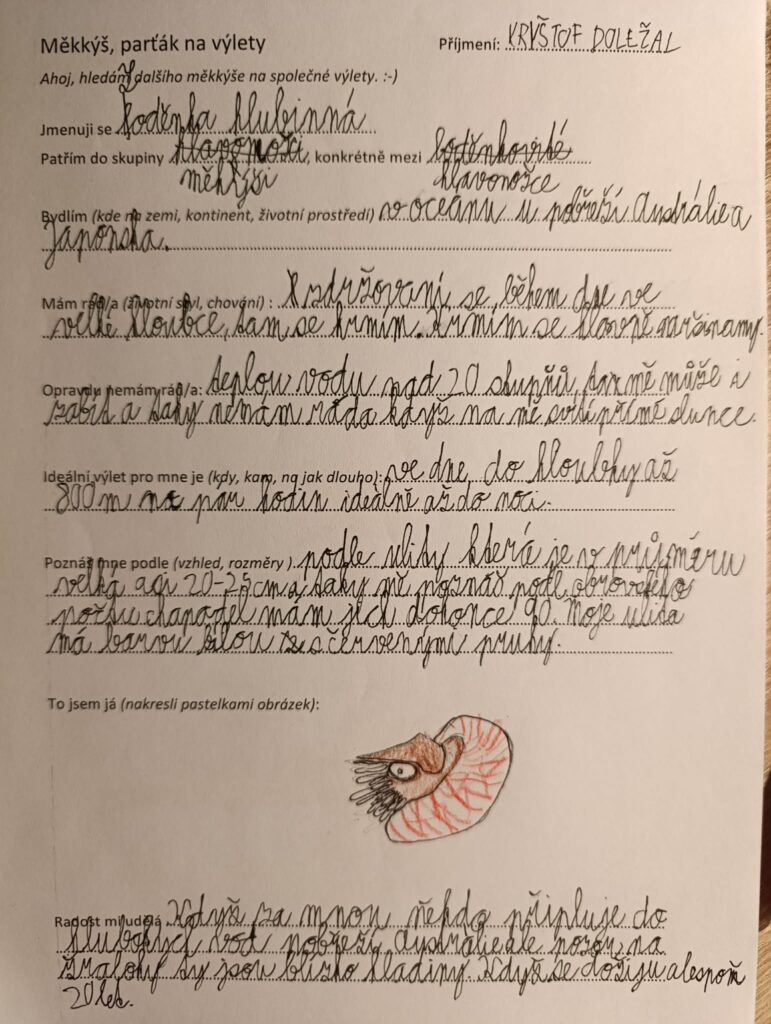 Měkkýš, parťák na výlety Příjmení: KRYŠTOF DOLEŽAL
Ahoj, hledám dalšího měkkýše na společné výlety. :-)
Jmenuji se Loděnka hlubinná
Patřím do skupiny hlavonožci, konkrétně mezi loděnkovité
měkkýši hlavonožce
Bydlím (kde na zemi, kontinent, životní prostředí) v oceánu u pobřeží Austrálie a
Japonska.
Mám rád/a (životní styl, chování) : zdržování se během dne ve
velké hloubce, tam se krmím. Krmím se hlavně mršinamy.
Opravdu nemám rád/a: teplou vodu nad 20 stupňů, ta mě může i
zabít a taky nemám ráda když na mě svítí přímé slunce.
Ideální výlet pro mne je (kdy, kam, na jak dlouho): ve dne, do hloubky až
800 m na pár hodin ideálně až do noci.
Poznáš mne podle (vzhled, rozměry ) podle ulity která je v průjměru
velká asi 20-25cm a taky mě poznáš podle obrovského
počtu chapadel mám jich dokonce 90. Moje ulita
má barvu bílou s červenými pruhy.
To jsem já (nakresli pastelkami obrázek):
Radost mi udělá Když za mnou někdo připluje do
hlubokých vod pobřeží Austrálie ale pozor na
žraloky ty jsou blízko hladiny. Když se dožiju alespoň
20 let.